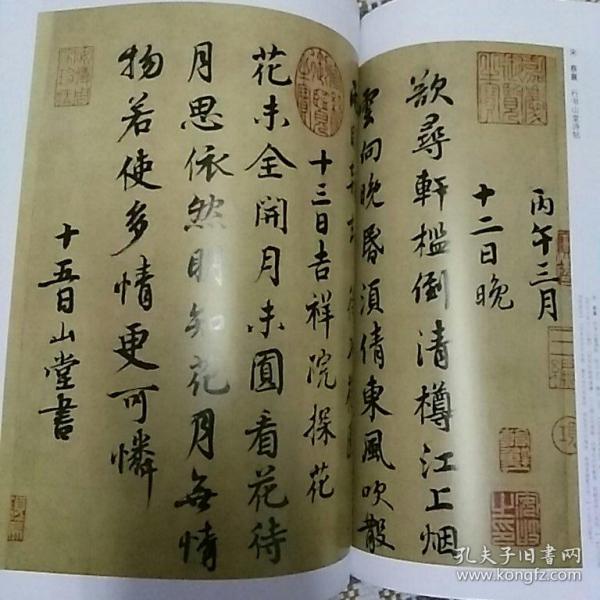 宋 蔡襄 行书山堂诗帖
丙午三月
十二日晚
欲尋軒檻倒清樽江上烟
雲向晚昏須倩東風吹散
十三日吉祥院探花
花未全開月未圓看花待
月思依然明知花月無情
物若使多情更可憐
十五日山堂書
孔夫子旧书网
www.kongfz.com